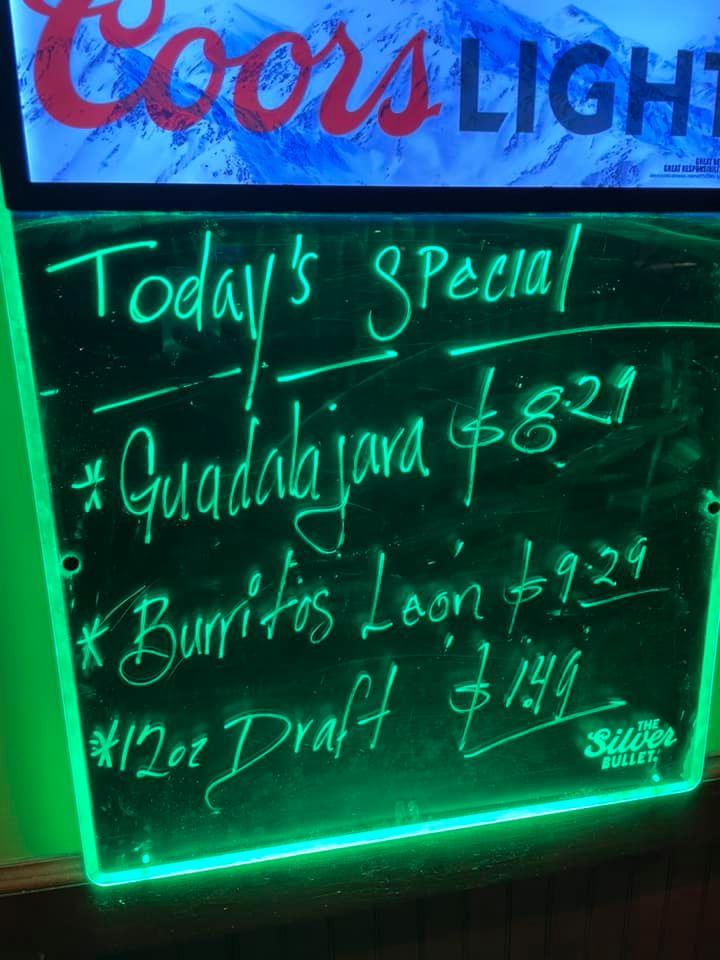 Coors LIGHT
GREAT RESPONSIBILITY
Today's Special
* Guadalajara $8.29
* Burritos León $9.29
* 12oz Draft $1.49
THE
Silver
BULLET.